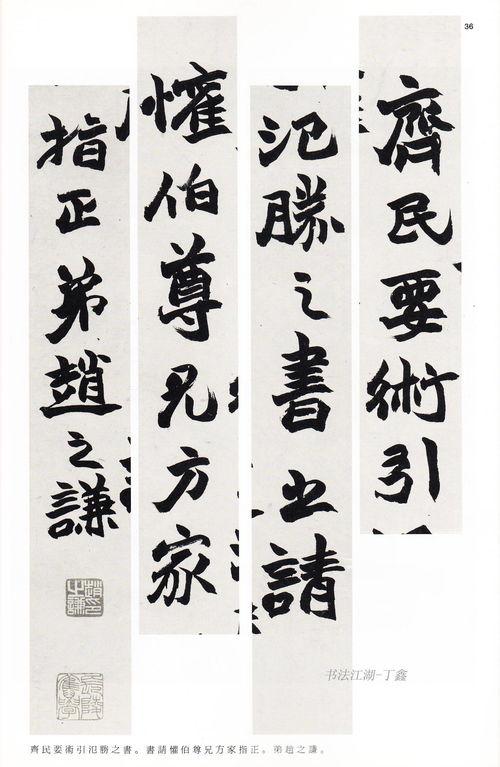 36
齊民要術引
氾勝之書 出請
懽伯尊兄方家
指正弟趙之謙
书法江湖-丁鑫
齊民要術引氾勝之書。書請懽伯尊兄方家指正。弟趙之謙。